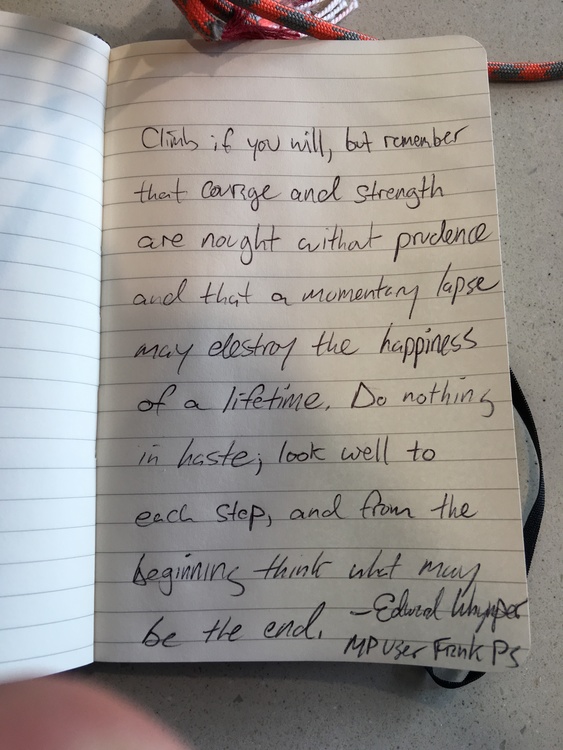 Climb if you will, but remember
that courage and strength
are nought without prudence
and that a momentary lapse
may destroy the happiness
of a lifetime. Do nothing
in haste; look well to
each step, and from the
beginning think what may
be the end. -Edward Whymper
MP User Frank PS